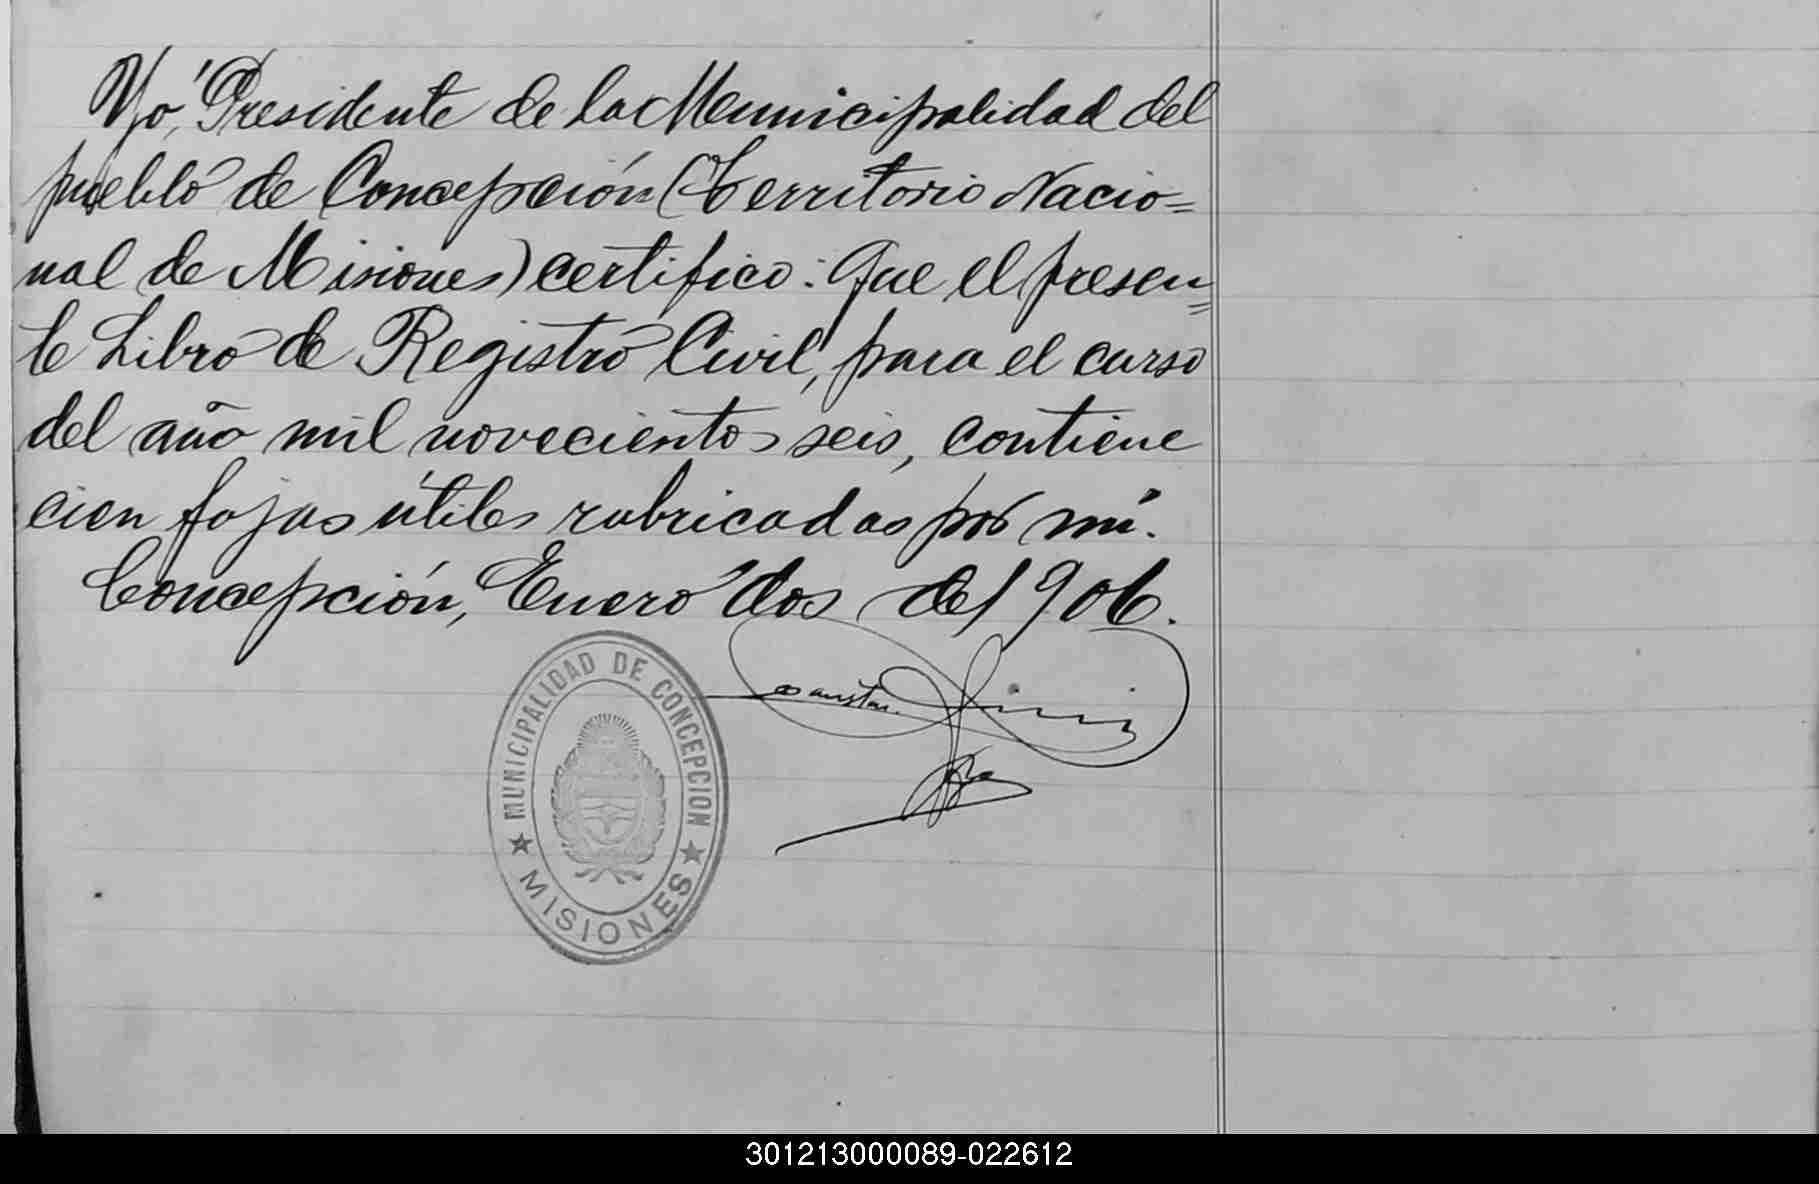 Yo, Presidente de la Municipalidad del
pueblo de Concepción (Territorio Nacio=
nal de Misiones) certifico: Que el presen=
te Libro de Registro Civil, para el curso
del año mil novecientos seis, contiene
cien fojas útiles rubricadas por mí.
Concepción, Enero dos de 1906.
MUNICIPALIDAD DE CONCEPCION
★ MISIONES ★
301213000089-022612